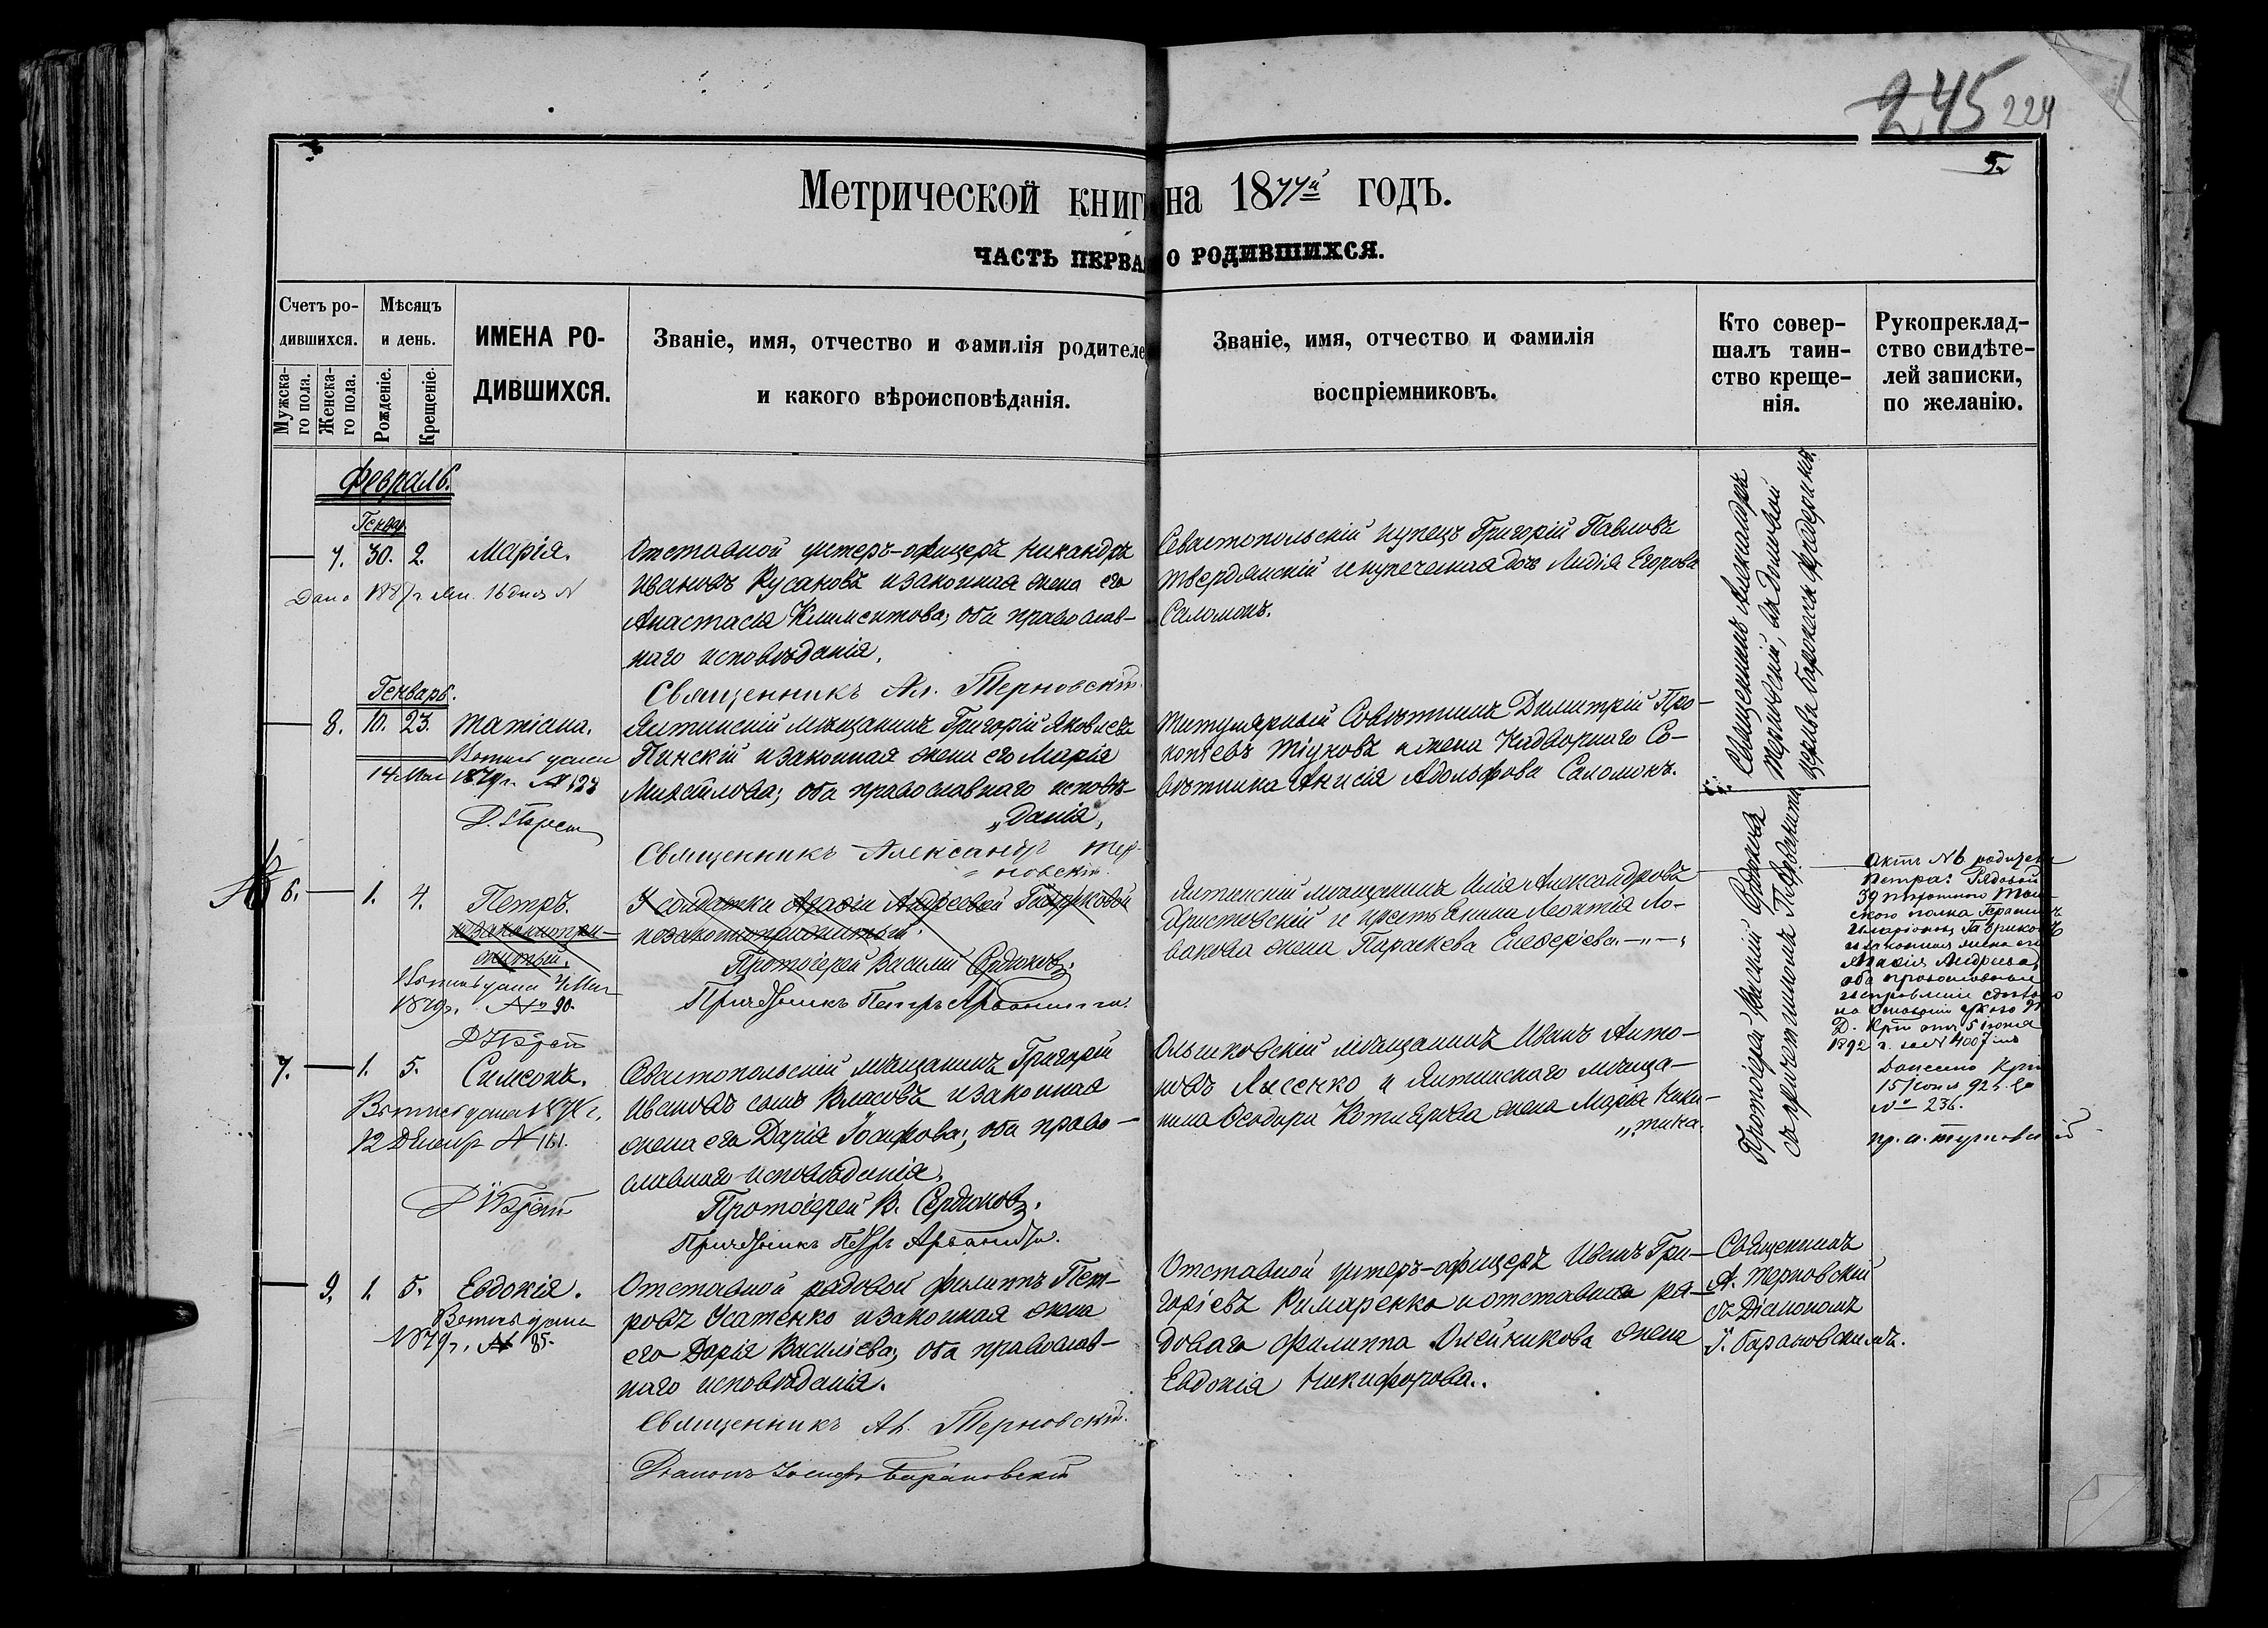 245 224
5.
Метрической книг на 1877й годъ.
ЧАСТЬ ПЕРВАЯ О РОДИВШИХСЯ.
Счетъ ро-
дившихся.
Мужска-
го пола.
Женска-
го пола.
Мѣсяцъ
и день.
Рожденіе.
Крещеніе.
ИМЕНА РО-
ДИВШИХСЯ.
Званіе, имя, отчество и фамилія родителе
и какого вѣроисповѣданія.
Званіе, имя, отчество и фамилія
воспріемниковъ.
Кто совер-
шалъ таин-
ство креще-
нія.
Рукоприклад-
ство свидѣте-
лей записки,
по желанію.
Февраль.
Генвар
7. 30. 2. Марія.
Дано 1887 г. 16 дня №
Отставной унтеръ-офицеръ Никандръ
Ивановъ Русановъ и законная жена его
Анастасія Климентова, оба православ-
наго исповѣданія.
Священникъ Ал. Терновскій.
Севастопольскій купецъ Григорій Павловъ
Твердянскій и купеческая дочь Лидія Егорова
Саломонъ.
Священникъ Александръ
Терновскій, въ домовой
церкви баронессы Фредериксъ.
Генварь.
8. 10. 23. Татіана.
Выпись дана
14 Мая 1879 г. № 123
Ялтинскій мѣщанинъ Григорій Яковлевъ
Пинскій и законная жена его Марія
Михайлова; оба православнаго исповѣ-
„данія,
Священникъ Александръ Тер-
новскій.
Титулярный Совѣтникъ Димитрій Про-
копіевъ Тіуновъ и жена Надворнаго Со-
вѣтника Анисія Адольфова Саломонъ.
№ 6. 1. 4. Петръ.
незаконнопри-
житый.
Выпись дана 4 Мая
1879 г. № 90.
У солдатки Агафіи Андреевой Гавриковой
незаконноприжитый.
Протоіерей Василій Сердюковъ.
Причетникъ Петръ
Ялтинскій мѣщанинъ Илія Александровъ
Христовскій и крестьянина Леонтія Ло-
вакова жена Параскева Елевферіева.—„—„
Протоіерей Василій Сердюковъ
съ причетникомъ
Актъ № 6 родител
Петра: Рядовой
39 пѣхотнаго Том-
скаго полка Герасимъ
Иларіоновъ Гавриковъ
и законная жена его
Агафія Андреева,
оба православные
исправленіе сдѣлано
на основаніи указа
Д. Кр. отъ 5 іюня
1892 г. за № 4007
Донесено
15 Іюня 92 г. за
№ 236.
пр. А. Терновскій
7. 1. 5. Симеонъ.
Выпись дана 187 г.
12 Декабр № 161.
Севастопольскій мѣщанинъ Григорій
Ивановъ сынъ Власовъ и законная
жена его Дарія Іосифова; оба право-
славнаго исповѣданія.
Протоіерей В. Сердюковъ.
Причетникъ Петръ
Ольшковскій мѣщанинъ Иванъ Анто-
новъ Лысенко и Ялтинскаго мѣща-
нина Ѳеодора Котлярова жена Марія Ники-
„тина.
9. 1. 5. Евдокія.
Выпись дана
1879 г. № 85.
Отставной рядовой Филиппъ Пет-
ровъ Усатенко и законная жена
его Дарія Василіева; оба православ-
наго исповѣданія.
Священникъ Ал. Терновскій.
Діаконъ Іосифъ Барановскій
Отставной унтеръ-офицеръ Иванъ Гри-
горіевъ Кимаренко и отставнаго ря-
доваго Филиппа Олейникова жена
Евдокія Никифорова.
Священникъ
А. Терновскій
съ Діакономъ
І. Барановскимъ.